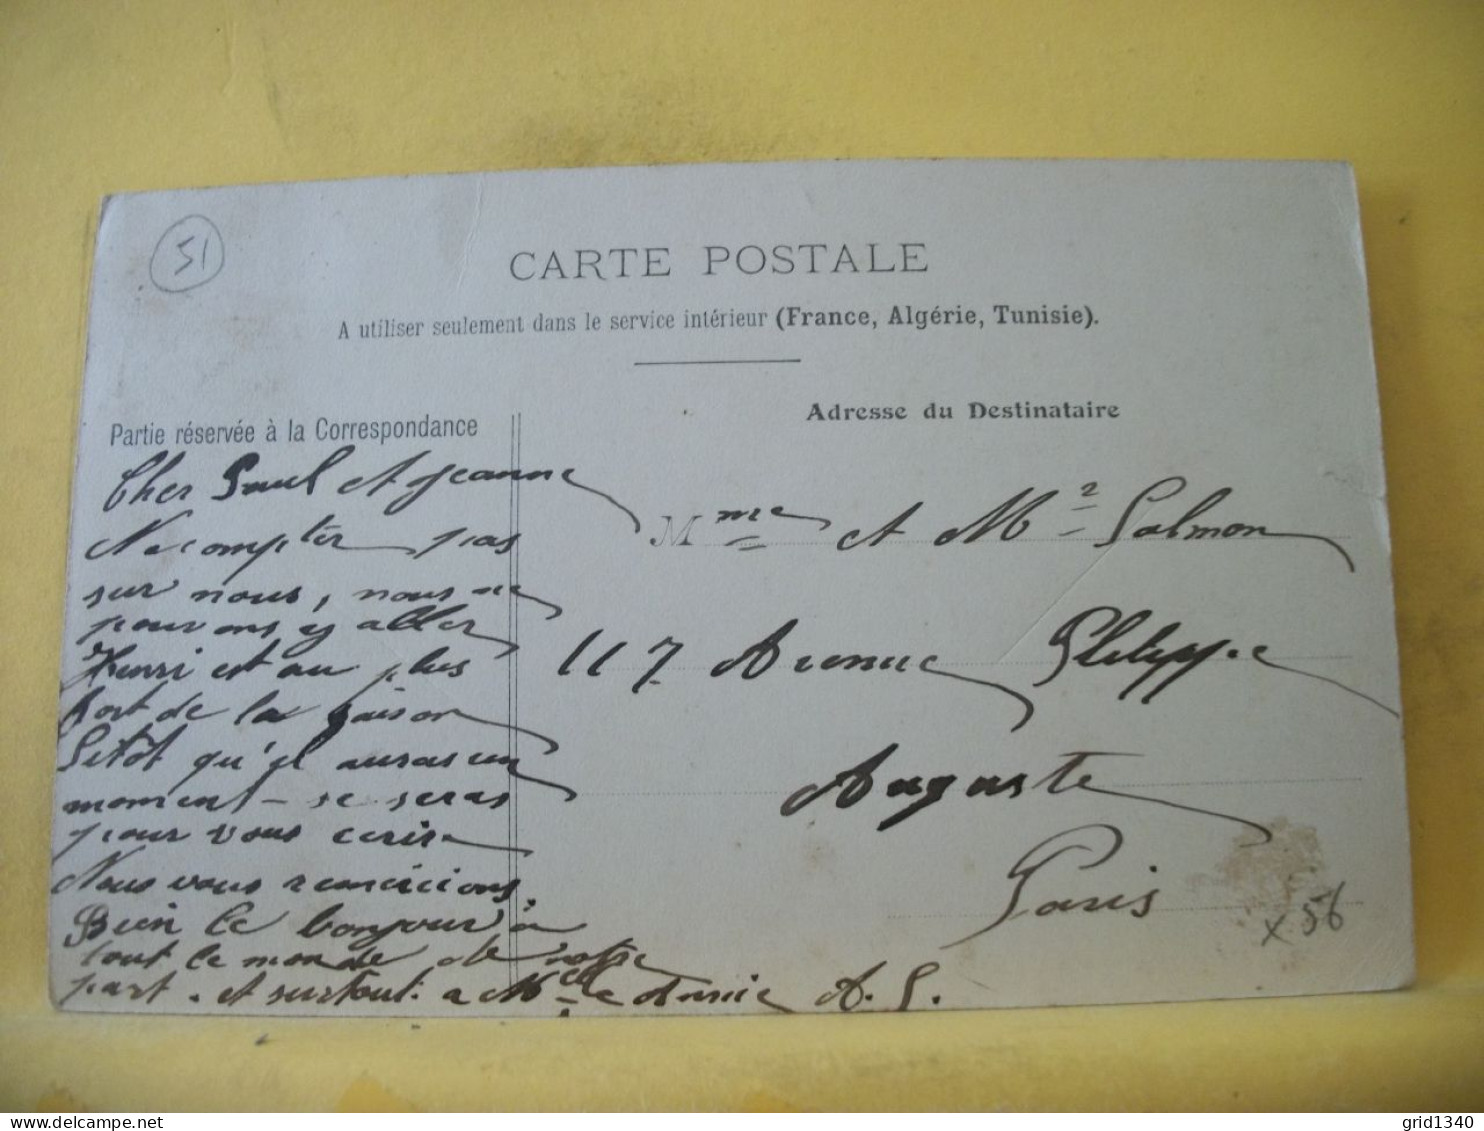 51
CARTE POSTALE
A utiliser seulement dans le service intérieur (France, Algérie, Tunisie).
Partie réservée à la Correspondance
Adresse du Destinataire
Cher Paul et Jeanne
Ne compter pas
sur nous, nous ne
pouvons y aller
Henri est au plus
fort de la saison
Sitôt qu'il auras un
moment se seras
pour vous ecrire
Nous vous remercions,
Bien le bonjour a
tout le monde de notre
part. et surtout a M A. S.
Mme et Mr Salmon
117 Avenue Philippe
Auguste
Paris
x 56
grid1340